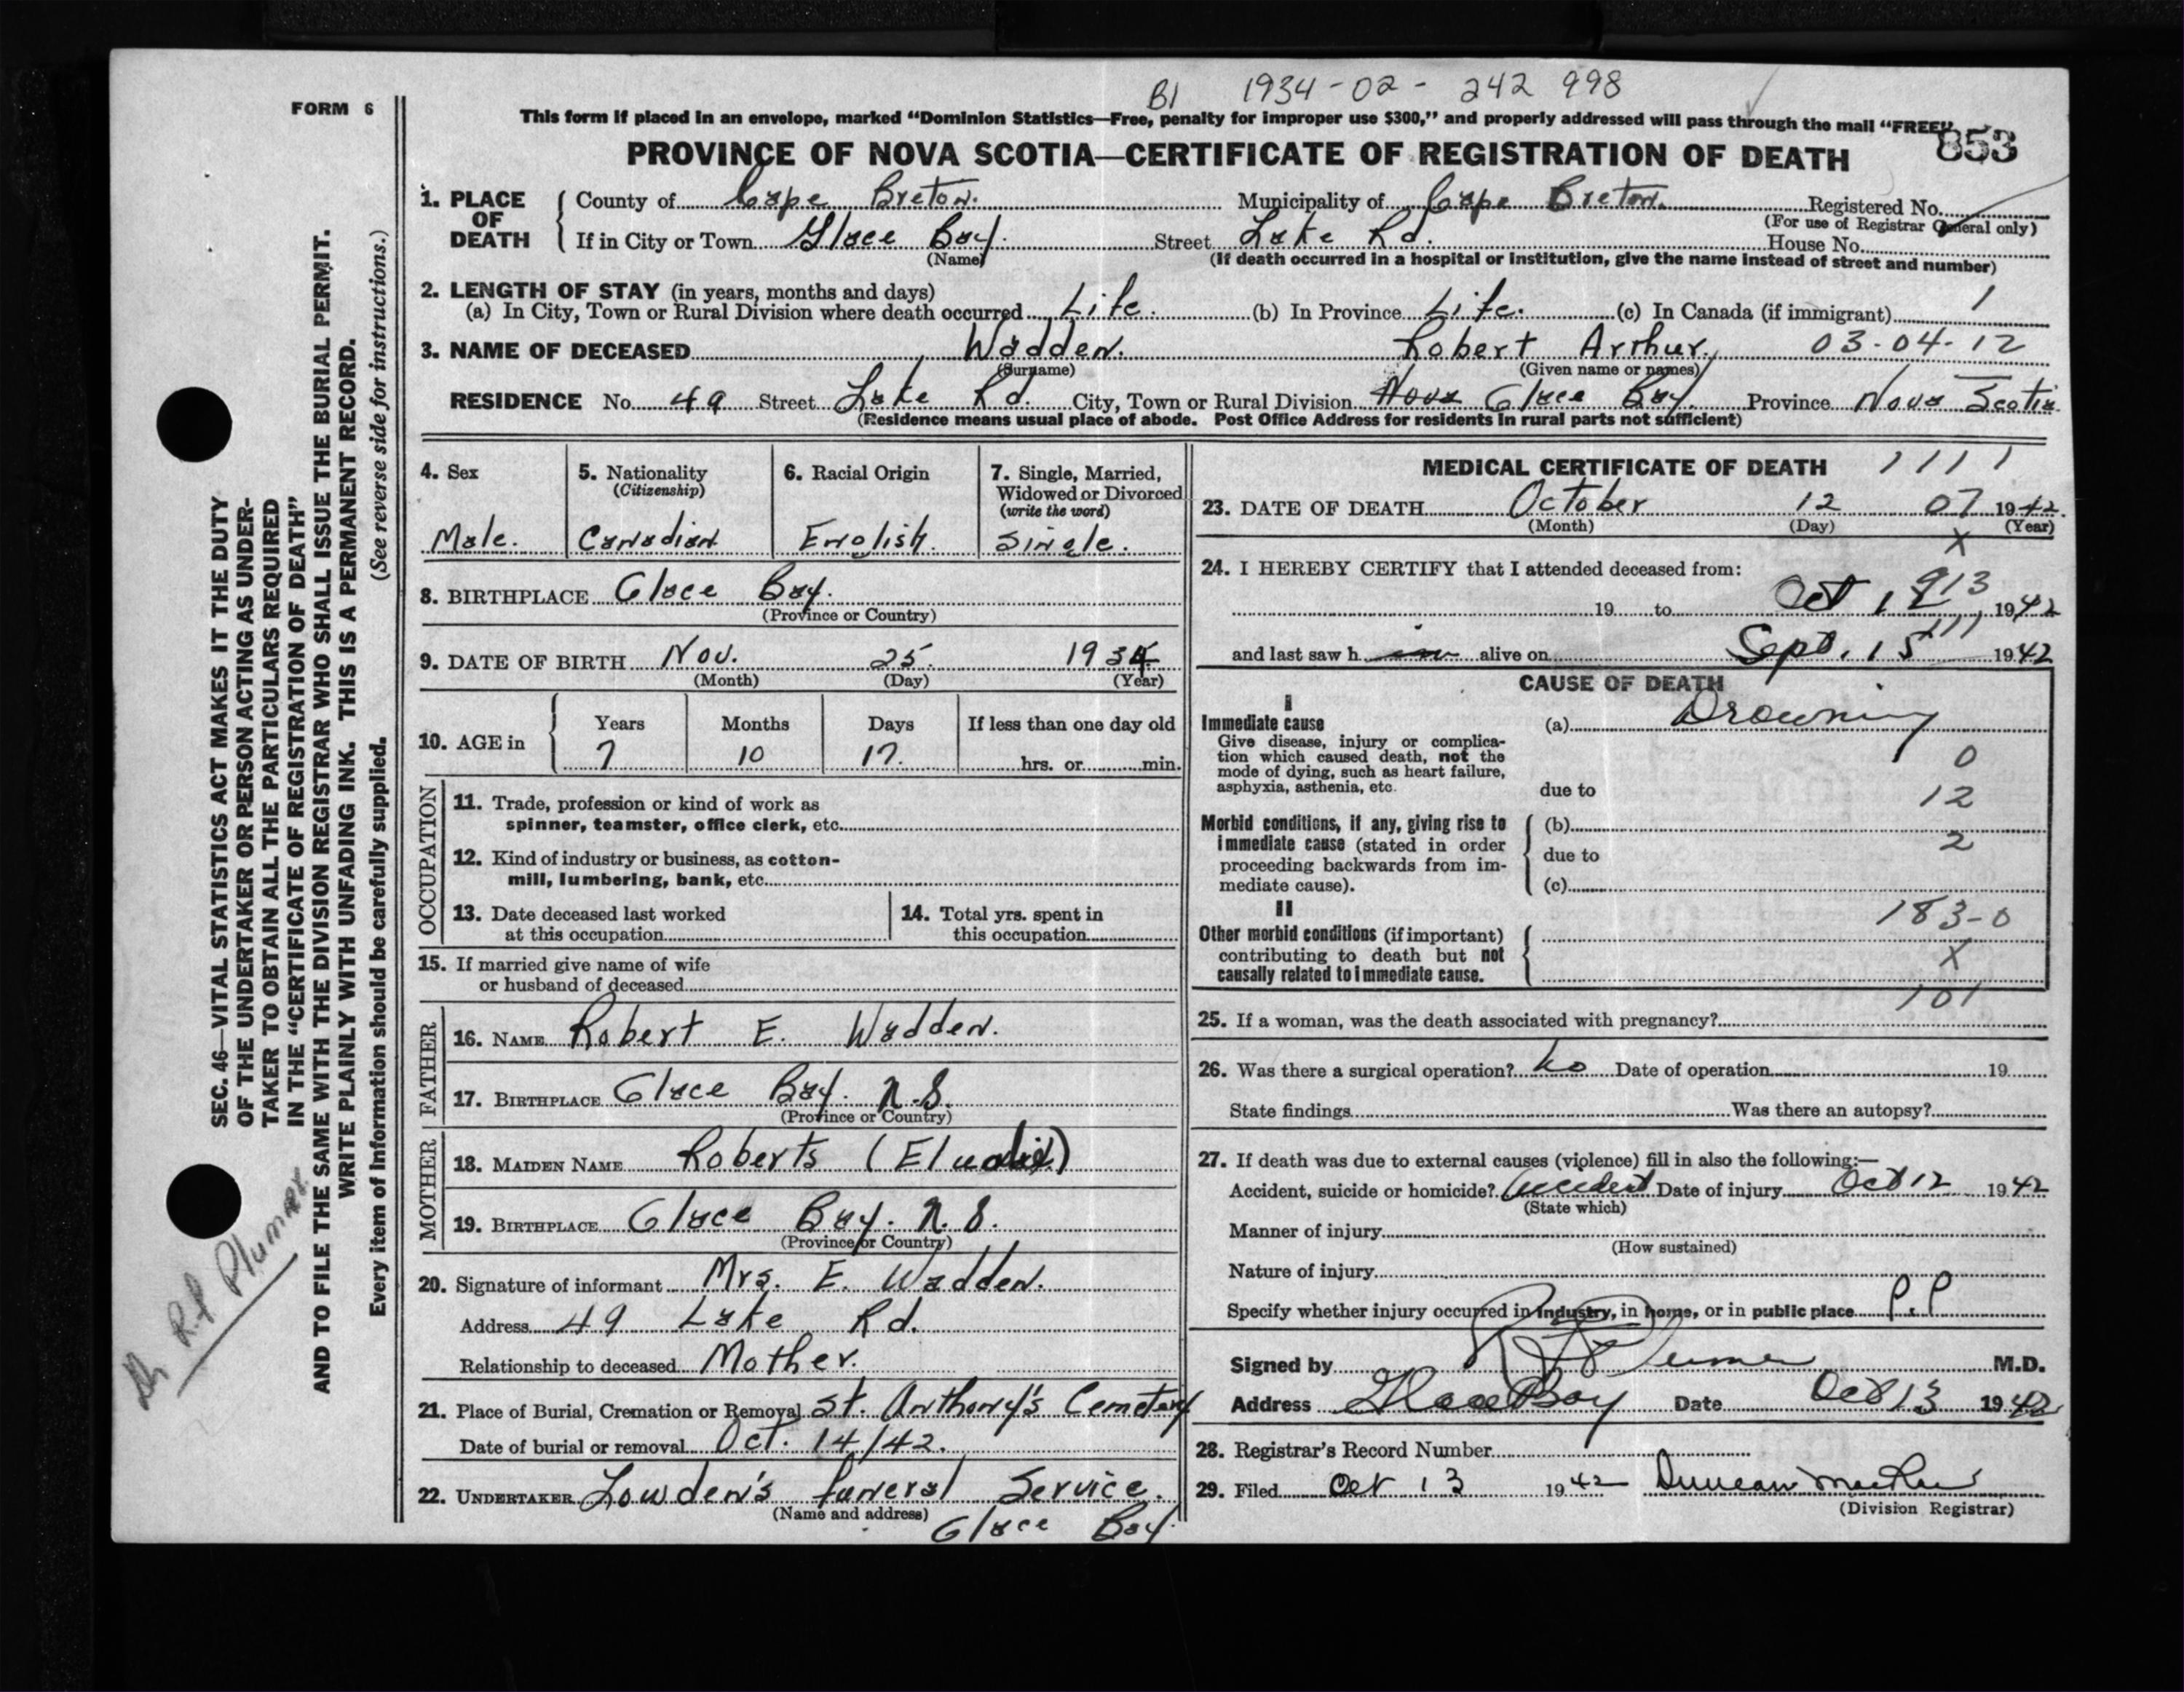 B1 1934-02-242 998
FORM 6
This form if placed in an envelope, marked "Dominion Statistics—Free, penalty for improper use $300," and properly addressed will pass through the mail "FREE".
853
PROVINCE OF NOVA SCOTIA—CERTIFICATE OF REGISTRATION OF DEATH
1. PLACE OF DEATH County of Cape Breton. Municipality of Cape Breton. Registered No.
(For use of Registrar General only)
If in City or Town Glace Bay. Street Lake Rd. House No.
(Name) (If death occurred in a hospital or institution, give the name instead of street and number)
2. LENGTH OF STAY (in years, months and days)
(a) In City, Town or Rural Division where death occurred Life. (b) In Province Life. (c) In Canada (if immigrant) 1
3. NAME OF DECEASED Wadden. Robert Arthur. 03-04-12
(Surname) (Given name or names)
RESIDENCE No. 49 Street Lake Rd. City, Town or Rural Division Nova Glace Bay. Province Nova Scotia
(Residence means usual place of abode. Post Office Address for residents in rural parts not sufficient)
4. Sex 5. Nationality (Citizenship) 6. Racial Origin 7. Single, Married, Widowed or Divorced (write the word)
Male. Canadian English. Single.
8. BIRTHPLACE Glace Bay.
(Province or Country)
9. DATE OF BIRTH Nov. 25. 1934
(Month) (Day) (Year)
10. AGE in Years Months Days If less than one day old
7 10 17. hrs. or min.
OCCUPATION
11. Trade, profession or kind of work as
spinner, teamster, office clerk, etc.
12. Kind of industry or business, as cotton-
mill, lumbering, bank, etc.
13. Date deceased last worked
at this occupation
14. Total yrs. spent in
this occupation
15. If married give name of wife
or husband of deceased
FATHER
16. NAME Robert E. Wadden.
17. BIRTHPLACE Glace Bay. N.S.
(Province or Country)
MOTHER
18. MAIDEN NAME Roberts
19. BIRTHPLACE Glace Bay. N.S.
(Province or Country)
20. Signature of informant Mrs. E. Wadden.
Address 49 Lake Rd.
Relationship to deceased Mother.
21. Place of Burial, Cremation or Removal St. Anthony's Cemetery
Date of burial or removal Oct. 14/42.
22. UNDERTAKER Lowden's Funeral Service.
(Name and address) Glace Bay.
MEDICAL CERTIFICATE OF DEATH 1111
23. DATE OF DEATH October 12 07 1942.
(Month) (Day) (Year)
X
24. I HEREBY CERTIFY that I attended deceased from:
19 to Oct 1942
and last saw h im alive on Sept. 15 1942
CAUSE OF DEATH
I
Immediate cause (a) Drowning
Give disease, injury or complica-
tion which caused death, not the
mode of dying, such as heart failure,
asphyxia, asthenia, etc.
0
due to 12
Morbid conditions, if any, giving rise to (b)
immediate cause (stated in order
proceeding backwards from im-
mediate cause).
2
due to
(c)
II
183-0
Other morbid conditions (if important)
contributing to death but not
causally related to immediate cause.
X
101
25. If a woman, was the death associated with pregnancy?
26. Was there a surgical operation? no Date of operation 19
State findings Was there an autopsy?
27. If death was due to external causes (violence) fill in also the following:—
Accident, suicide or homicide? Accident Date of injury Oct 12 1942
(State which)
Manner of injury
(How sustained)
Nature of injury
Specify whether injury occurred in industry, in home, or in public place P.P
Signed by M.D.
Address Glace Bay Date Oct 13 1942
28. Registrar's Record Number
29. Filed Oct 13 1942 Duncan
(Division Registrar)
SEC. 46—VITAL STATISTICS ACT MAKES IT THE DUTY
OF THE UNDERTAKER OR PERSON ACTING AS UNDER-
TAKER TO OBTAIN ALL THE PARTICULARS REQUIRED
IN THE "CERTIFICATE OF REGISTRATION OF DEATH"
AND TO FILE THE SAME WITH THE DIVISION REGISTRAR WHO SHALL ISSUE THE BURIAL PERMIT.
WRITE PLAINLY WITH UNFADING INK. THIS IS A PERMANENT RECORD.
Every item of Information should be carefully supplied. (See reverse side for instructions.)
Dr Plumer